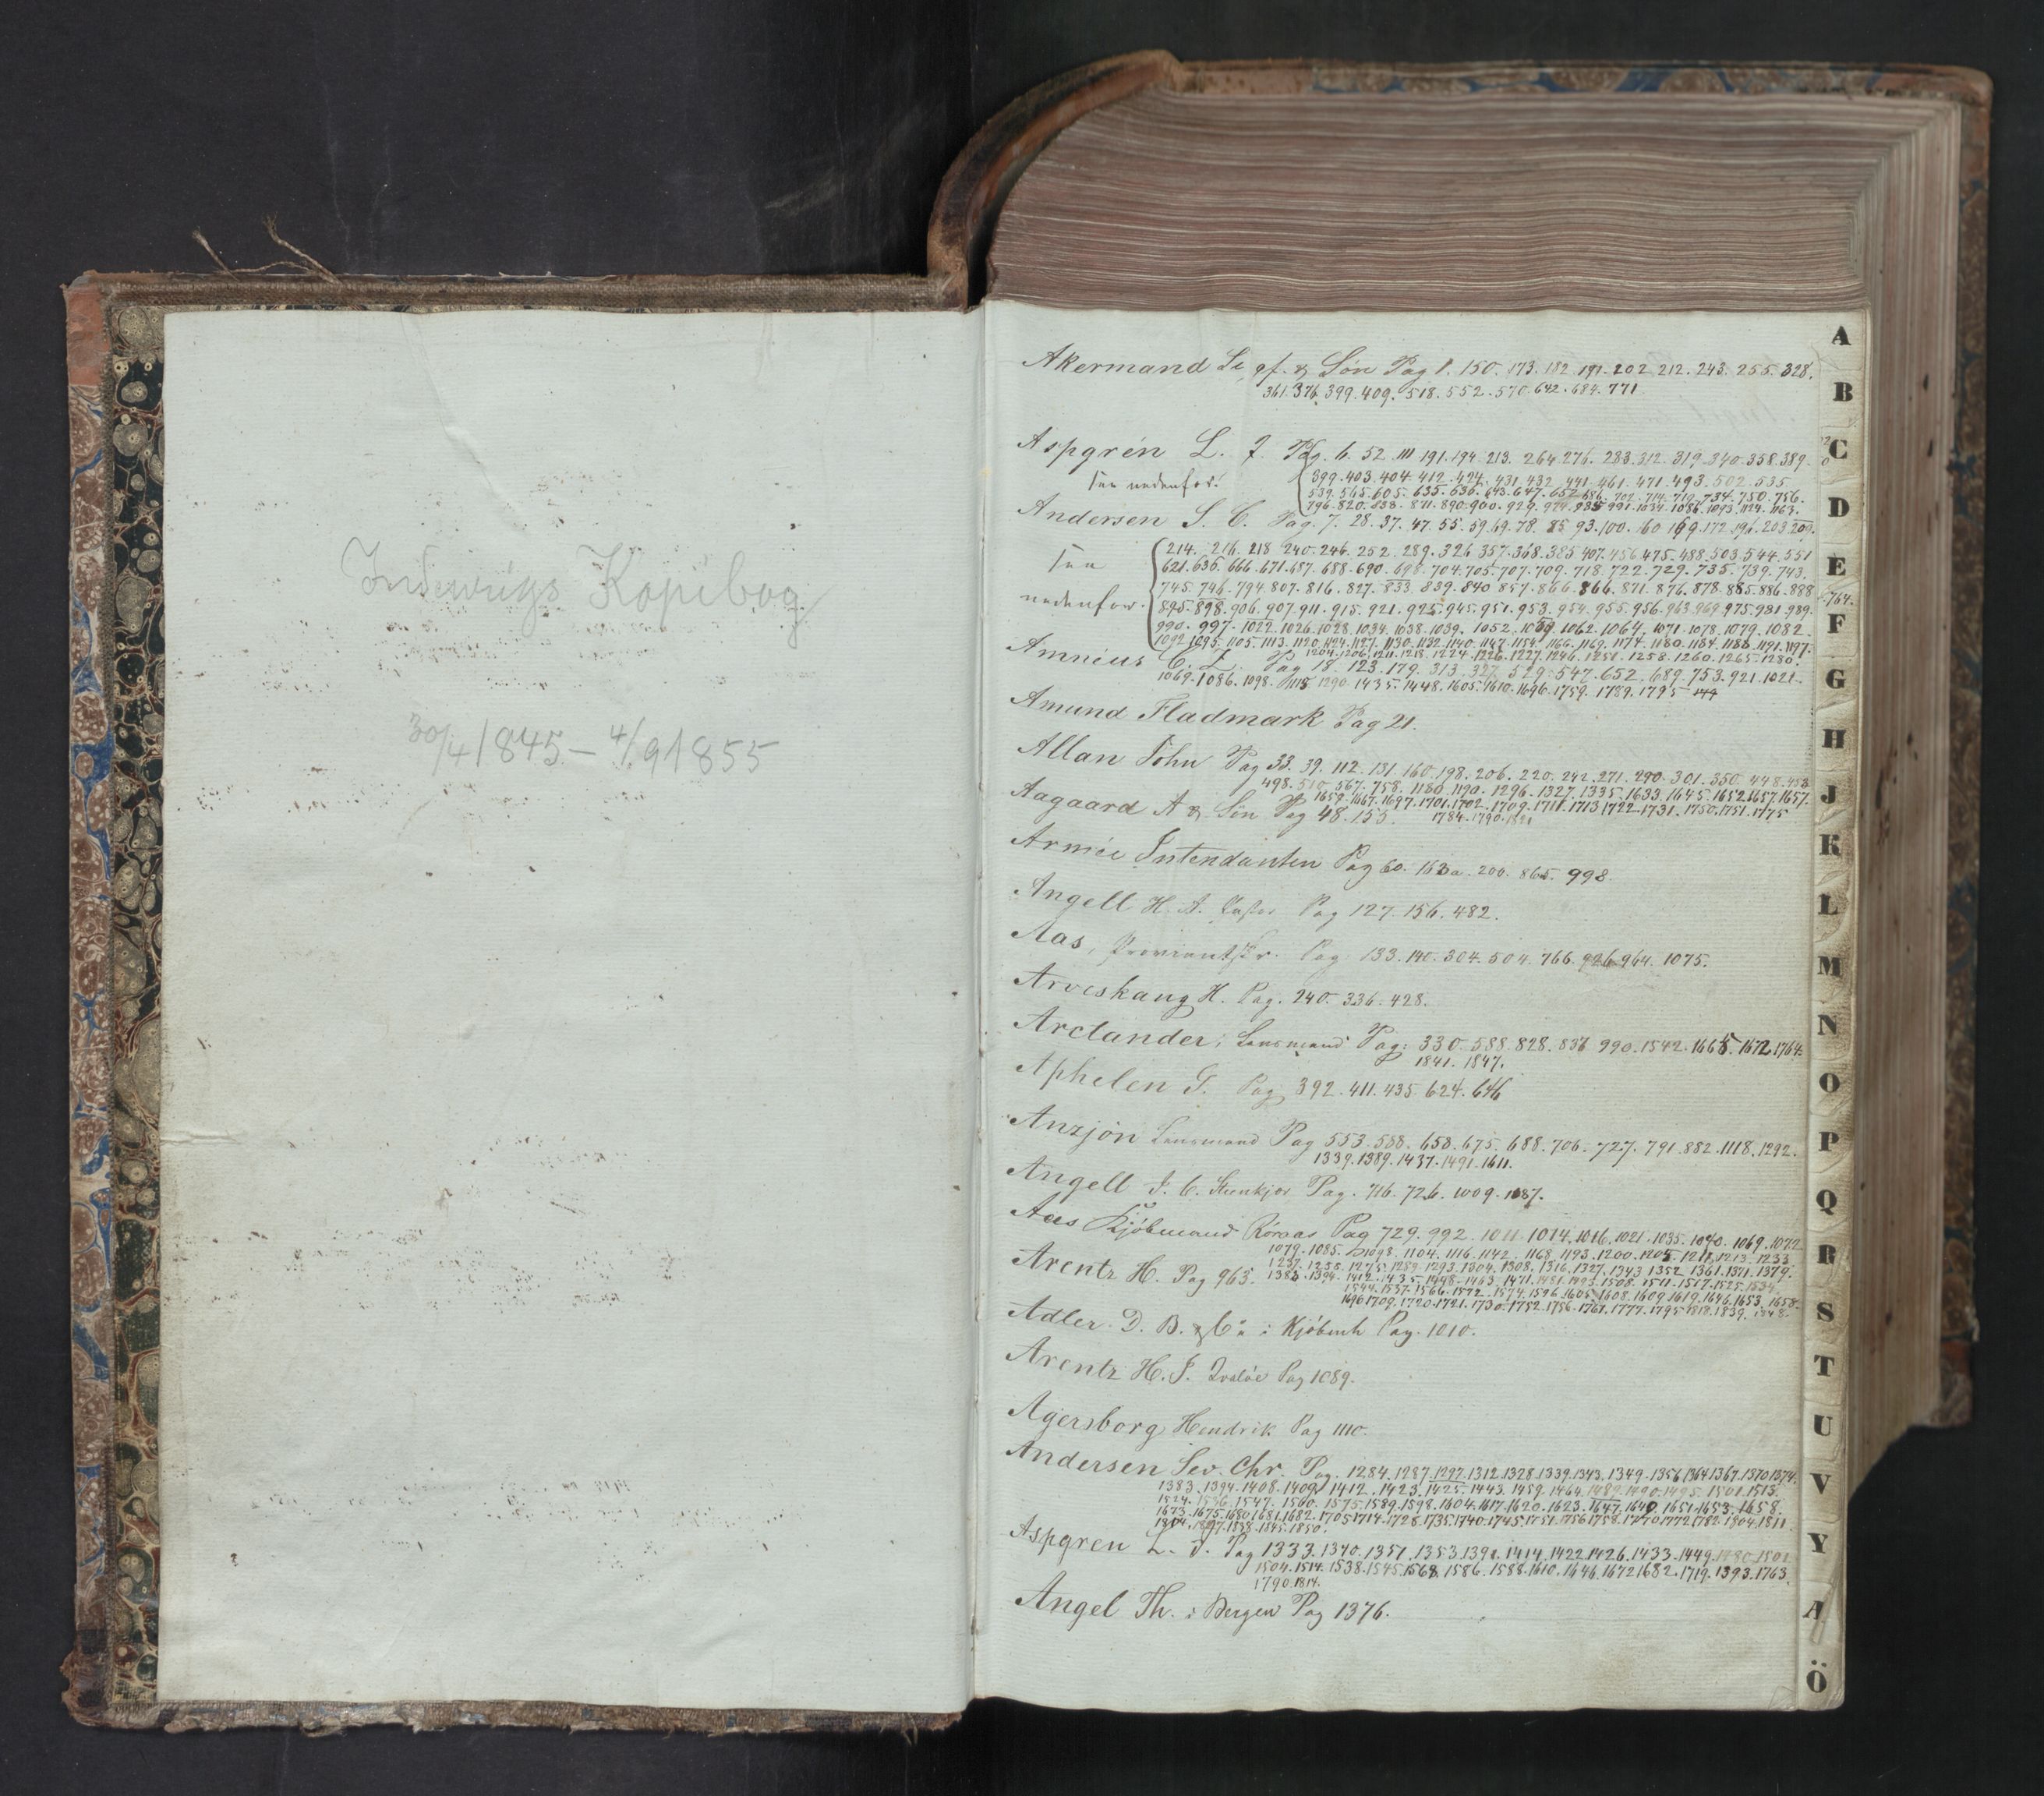 Indenrigs Kopibog
30/4 1845 – 4/9 1855
Akermand & Søn Pag 1. 150. 173. 182. 191. 202. 212. 243. 255. 328.
361. 376. 399. 409. 518. 552. 570. 642. 684. 771
Aspgrén L. J. Pag. 6. 52. 111. 191. 194. 213. 264. 276. 283. 312. 319. 340. 358. 389.
see nedenfor. 399. 403. 404. 412. 424. 431. 432. 441. 461. 471. 493. 502. 535.
539. 565. 605. 635. 636. 643. 647. 652. 686. 702. 714. 719. 734. 750. 756.
796. 820. 838. 871. 890. 900. 929. 974. 985. 991. 1034. 1086. 1093. 1124. 1163.
Andersen S. C. Pag. 7. 28. 37. 47. 55. 59. 69. 78. 85. 93. 100. 160. 169. 172. 196. 203. 209.
see 214. 216. 218. 240. 246. 252. 289. 326. 357. 368. 385. 407. 456. 475. 488. 503. 544. 551
621. 636. 666. 671. 687. 688. 690. 698. 704. 705. 707. 709. 718. 722. 729. 735. 739. 743.
nedenfor. 745. 746. 794. 807. 816. 827. 833. 839. 840. 857. 866. 866. 871. 876. 878. 885. 886. 888
764.
895. 898. 906. 907. 911. 915. 921. 925. 945. 951. 953. 954. 955. 956. 963. 969. 975. 981. 989.
990. 997. 1022. 1026. 1028. 1034. 1038. 1039. 1052. 1059. 1062. 1064. 1071. 1078. 1079. 1082.
1092. 1095. 1105. 1113. 1120. 1124. 1127. 1130. 1132. 1140. 1147. 1154. 1166. 1169. 1174. 1180. 1184. 1188. 1191. 1197.
1204. 1206. 1211. 1218. 1224. 1226. 1227. 1246. 1251. 1258. 1260. 1265. 1280.
Amnéus C. L. Pag 18. 123. 179. 313. 327. 529. 547. 652. 689. 753. 921. 1021.
1069. 1086. 1098. 1118. 1290. 1435. 1448. 1605. 1610. 1696. 1759. 1789. 1795.
Amund Fladmark Pag 21.
Allan John Pag 33. 39. 112. 131. 160. 198. 206. 220. 242. 271. 290. 301. 350. 448. 453
498. 510. 567. 758. 1180. 1190. 1296. 1327. 1335. 1633. 1645. 1652. 1657. 1657.
1659. 1667. 1697. 1701. 1702. 1709. 1711. 1713. 1722. 1731. 1750. 1751. 1775
Aagaard A & Søn Pag 48. 155. 1784. 1790. 1821
Armée Intendanten Pag 60. 163a. 200. 865. 998.
Angell H. A. Pastor Pag 127. 156. 482.
Aas, Proviantskr. Pag 133. 140. 304. 504. 766. 926. 964. 1075.
Arveskaug H. Pag. 240. 336. 428.
Arctander, Lensmand Pag: 330. 588. 828. 836. 990. 1542. 1665. 1672. 1764.
1841. 1847.
Aphelen G. Pag 392. 411. 435. 624. 646
Anzjøn Lensmand Pag 553. 588. 658. 675. 688. 706. 727. 791. 882. 1118. 1292.
1339. 1389. 1437. 1491. 1611.
Angell J. C. Steenkjer Pag. 716. 726. 1009. 1087.
Aas Kjøbmand Røraas Pag 729. 992. 1011. 1014. 1016. 1021. 1035. 1040. 1069. 1072
1079. 1085. 1098. 1104. 1116. 1142. 1168. 1193. 1200. 1205. 1211. 1213. 1233
1237. 1258. 1275. 1289. 1293. 1304. 1308. 1316. 1327. 1343. 1352. 1361. 1371. 1379.
Arentz H. Pag 963. 1383. 1394. 1412. 1435. 1448. 1463. 1471. 1481. 1493. 1508. 1511. 1517. 1525. 1534.
1544. 1557. 1566. 1572. 1574. 1596. 1605. 1608. 1609. 1619. 1646. 1653. 1658.
1696. 1709. 1720. 1721. 1730. 1752. 1756. 1767. 1777. 1795. 1818. 1839. 1848.
Adler D. B. & Co i Kjøbenh Pag. 1010.
Arentz H. J. Pag 1089.
Agersborg Hendrik Pag 1110.
Andersen Sev. Chr. Pag. 1284. 1287. 1297. 1312. 1328. 1339. 1343. 1349. 1356. 1364. 1367. 1370. 1374.
1383. 1394. 1408. 1409. 1412. 1423. 1425. 1443. 1459. 1464. 1489. 1490. 1495. 1501. 1513.
1524. 1536. 1547. 1560. 1575. 1589. 1598. 1604. 1617. 1620. 1623. 1647. 1640. 1651. 1653. 1658.
1673. 1675. 1680. 1681. 1682. 1705. 1714. 1728. 1735. 1740. 1745. 1751. 1756. 1758. 1770. 1772. 1782. 1804. 1811
1838. 1845. 1850.
Aspgren L. J. Pag 1333. 1340. 1351. 1353. 1391. 1414. 1422. 1426. 1433. 1449. 1480. 1502
1504. 1514. 1538. 1545. 1568. 1586. 1588. 1610. 1646. 1672. 1682. 1719. 1393. 1763.
1790. 1814.
Angel Th. i Bergen Pag 1376.
A
B
C
D
E
F
G
H
J
K
L
M
N
O
P
Q
R
S
T
U
V
Y
A
Ö